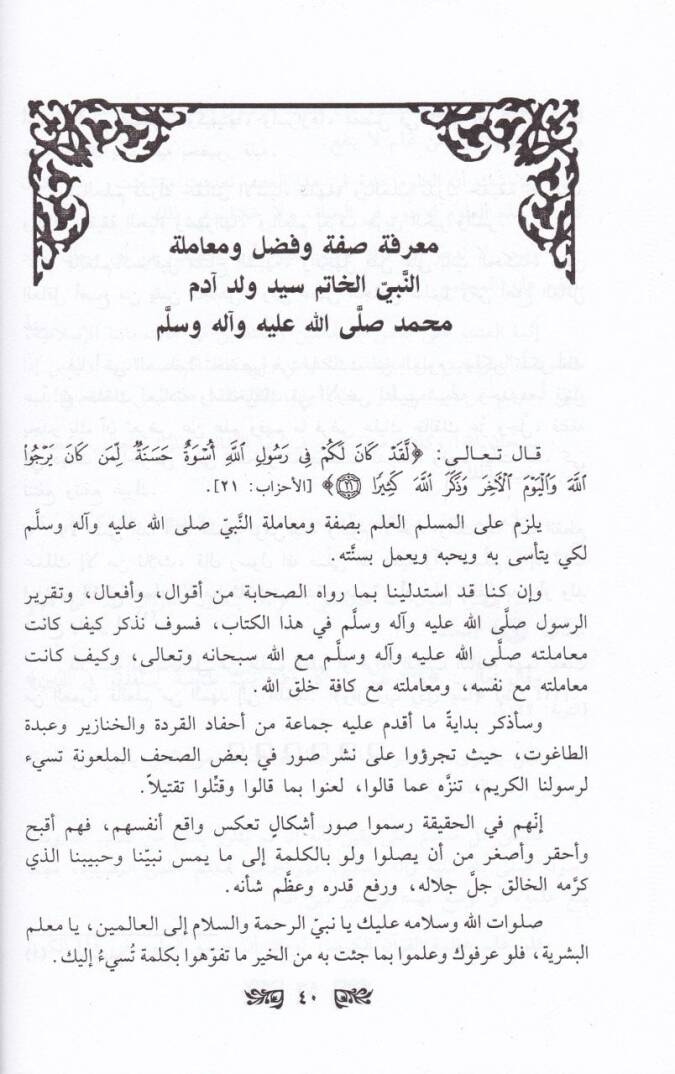 معرفة صفة وفضل ومعاملة
النَّبيّ الخاتم سيد ولد آدم
محمد صلَّى الله عليه وآله وسلَّم
قال تعالى: ﴿لَّقَدْ كَانَ لَكُمْ فِي رَسُولِ اللَّهِ أُسْوَةٌ حَسَنَةٌ لِّمَن كَانَ يَرْجُوا
اللَّهَ وَالْيَوْمَ الْآخِرَ وَذَكَرَ اللَّهَ كَثِيرًا ﴿٢١﴾﴾ [الأحزاب: ٢١].
يلزم على المسلم العلم بصفة ومعاملة النَّبيّ صلى الله عليه وآله وسلَّم
لكي يتأسى به ويحبه ويعمل بسنَّته.
وإن كنا قد استدلينا بما رواه الصحابة من أقوال، وأفعال، وتقرير
الرسول صلَّى الله عليه وآله وسلَّم في هذا الكتاب، فسوف نذكر كيف كانت
معاملته صلَّى الله عليه وآله وسلَّم مع الله سبحانه وتعالى، وكيف كانت
معاملته مع نفسه، ومعاملته مع كافة خلق الله.
وسأذكر بدايةً ما أقدم عليه جماعة من أحفاد القردة والخنازير وعبدة
الطاغوت، حيث تجرؤوا على نشر صور في بعض الصحف الملعونة تسيء
لرسولنا الكريم، تنزَّه عما قالوا، لعنوا بما قالوا وقتِّلوا تقتيلاً.
إنّهم في الحقيقة رسموا صور أشكالٍ تعكس واقع أنفسهم، فهم أقبح
وأحقر وأصغر من أن يصلوا ولو بالكلمة إلى ما يمس نبيّنا وحبيبنا الذي
كرَّمه الخالق جلَّ جلاله، ورفع قدره وعظَّم شأنه.
صلوات الله وسلامه عليك يا نبيّ الرحمة والسلام إلى العالمين، يا معلم
البشرية، فلو عرفوك وعلموا بما جئت به من الخير ما تفوّهوا بكلمة تُسيءُ إليك.
٤٠